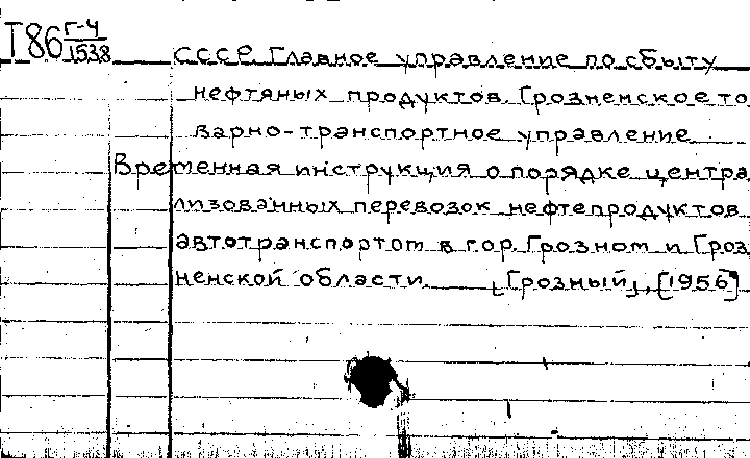 Т86 Г-4
1538
СССР. Главное управление по сбыту
нефтяных продуктов. Грозненское то
варно-транспортное управление.
Временная инструкция о порядке центра
лизованных перевозок нефтепродуктов
автотранспортом в гор. Грозном и Гроз
ненской области. [Грозный], [1956]